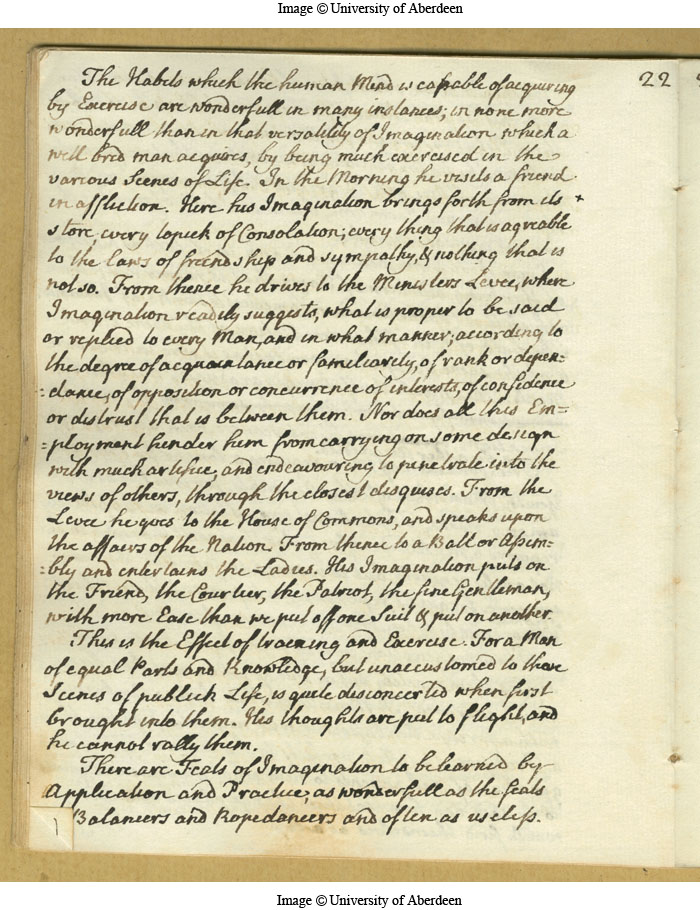 Image © University of Aberdeen
22
The Habits which the human Mind is capable of acquiring
by Exercise are wonderfull in many instances; in none more
wonderfull than in that versatility of Imagination which a
well bred man acquires, by being much exercised in the
various Scenes of Life. In the Morning he visits a friend
in affliction. Here his Imagination brings forth from its +
store every topick of Consolation; every thing that is agreable
to the laws of friendship and sympathy, & nothing that is
not so. From thence he drives to the Ministers Levee, where
Imagination readily suggests, what is proper to be said
or replied to every Man, and in what manner; according to
the degree of acquaintance or familiarity, of rank or depen=
=dance, of opposition or concurrence of interests, of confidence
or distrust that is between them. Nor does all this Em=
=ployment hinder him from carrying on some design
with much artifice, and endeavouring to penetrate into the
views of others, through the closest disguises. From the
Levee he goes to the House of Commons, and speaks upon
the affairs of the Nation. From thence to a Ball or Assem=
=bly and entertains the Ladies. His Imagination puts on
the Friend, the Courtier, the Patriot, the fine Gentleman,
with more Ease than we put off one Suit & put on another.
This is the Effect of training and Exercise. For a Man
of equal Parts and Knowledge, but unaccustomed to these
Scenes of publick Life, is quite disconcerted when first
brought into them. His thoughts are put to flight, and
he cannot rally them.
There are Feats of Imagination to be learned by
Application and Practice; as wonderfull as the feats
Balancers and Ropedancers and often as useless.
1
Image © University of Aberdeen